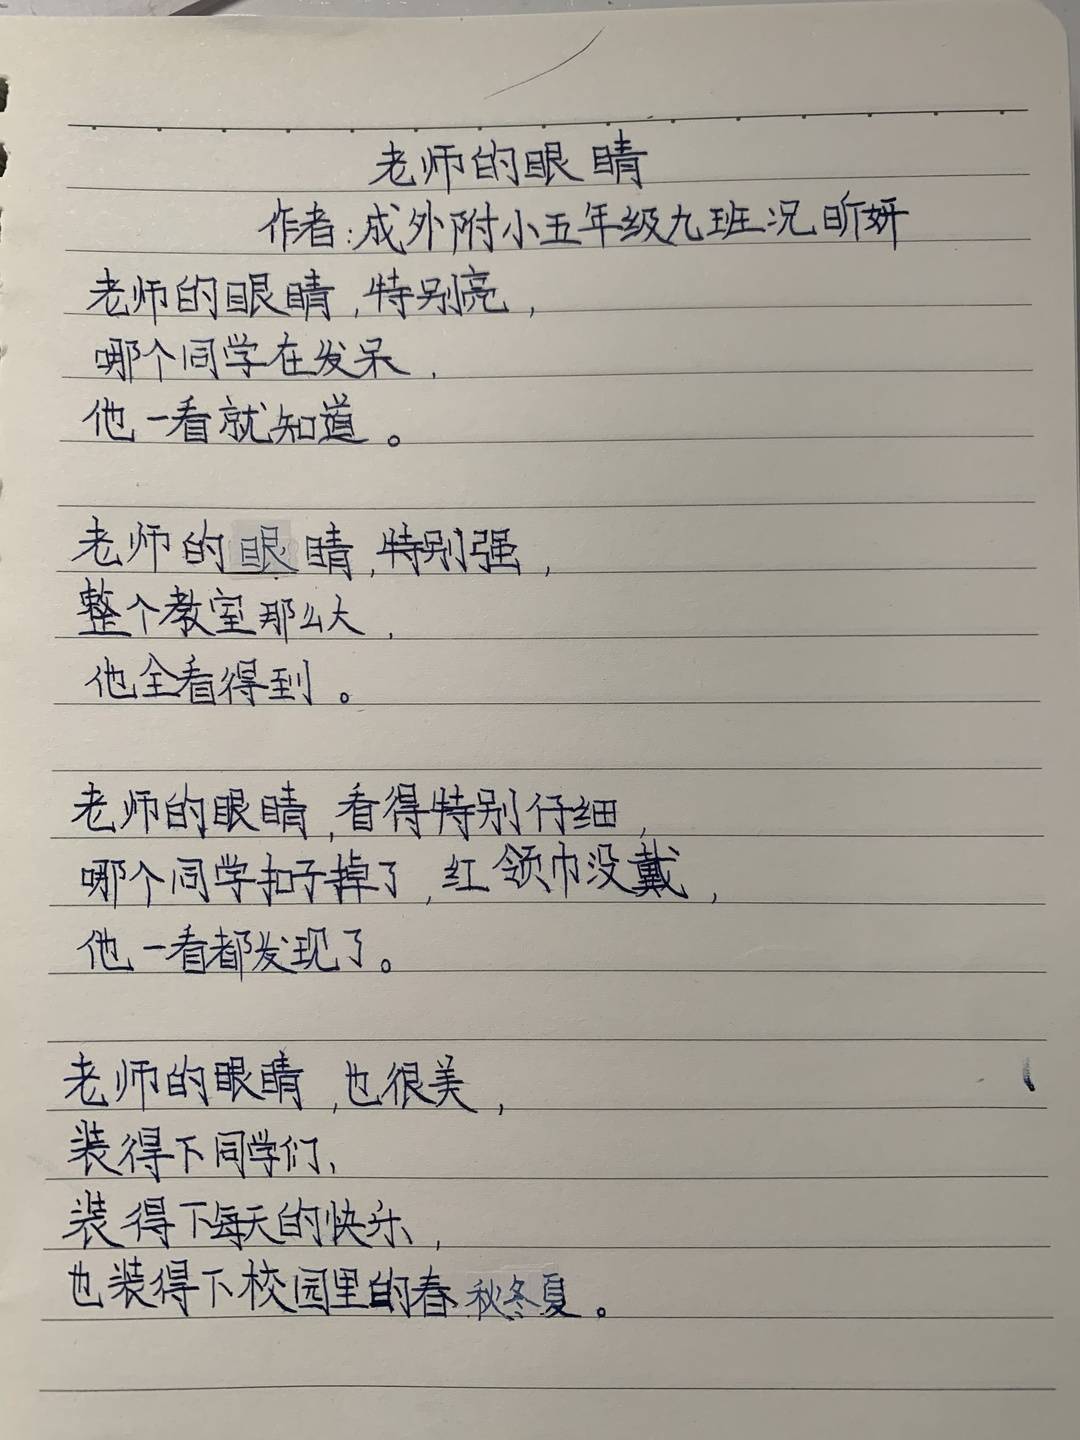 老师的眼睛
作者:成外附小五年级九班况昕妍
老师的眼睛,特别亮,
哪个同学在发呆,
他一看就知道。
老师的眼睛,特别强,
整个教室那么大,
他全看得到。
老师的眼睛,看得特别仔细,
哪个同学扣子掉了,红领巾没戴,
他一看都发现了。
老师的眼睛,也很美,
装得下同学们、
装得下每天的快乐,
也装得下校园里的春秋冬夏。